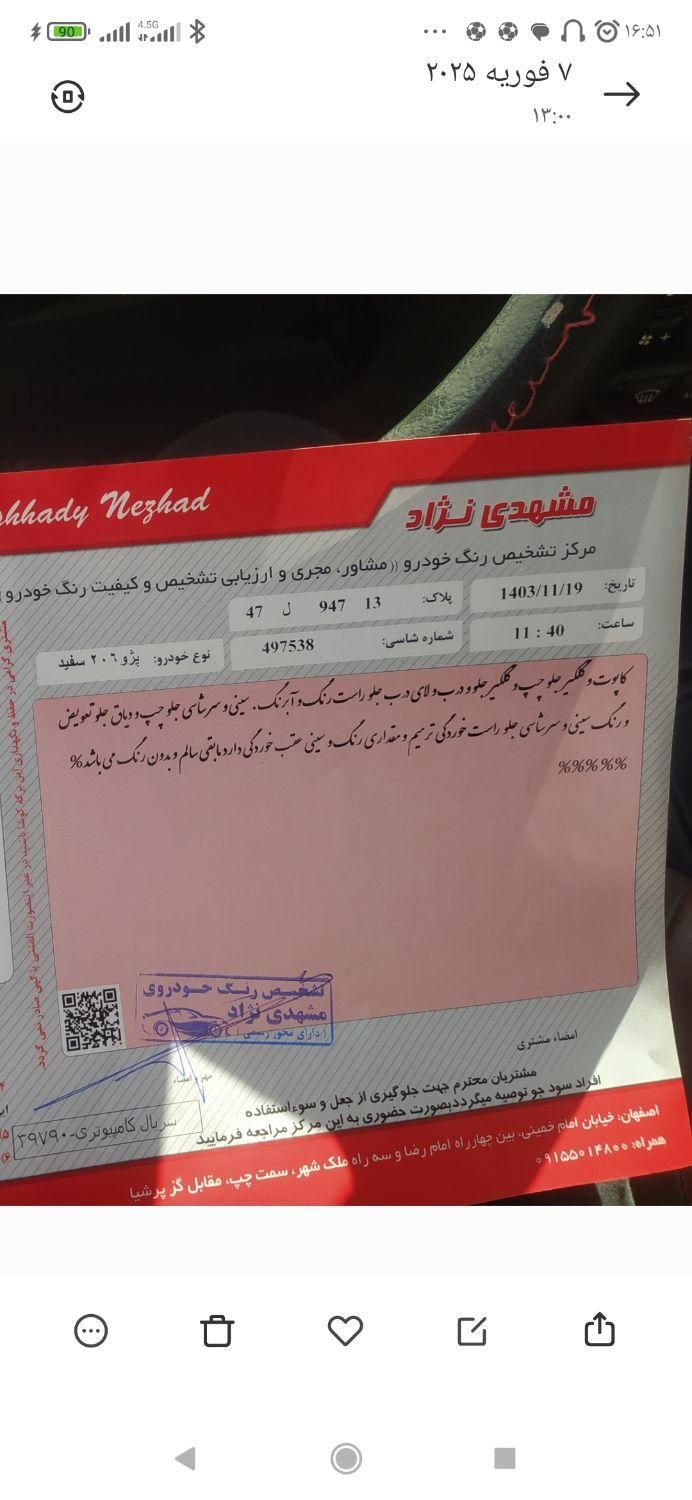 90
4.5G
۱۶:۵۱
۷ فوریه ۲۰۲۵
۱۳:۰۰
hhady Nezhad
مشهدی نژاد
مرکز تشخیص رنگ خودرو ((مشاور، مجری و ارزیابی تشخیص و کیفیت رنگ خودرو)
تاریخ: 1403/11/19
پلاک: 13 947 ل 47
ساعت: 11 : 40
شماره شاسی: 497538
نوع خودرو: پژو ۲۰۶ سفید
کاپوت و گلگیر جلو چپ و گلگیر جلو و درب و لای درب جلو راست رنگ و آبرنگ. سینی و سرشاسی جلو چپ و دیاق جلو تعویض
و رنگ سینی و سرشاسی جلو راست خوردگی ترمیم و مقداری رنگ و سینی عقب خوردگی دارد مابقی سالم و بدون رنگ می باشد %
%%%%%
مشتری گرامی در حفظ و نگهداری این برگه کوشا باشید در غیر اینصورت المثنی یا کپی صادر نمی گردد.
تشخیص رنگ خودروی
مشهدی نژاد
(دارای مجوز رسمی)
مهر و امضاء
امضاء مشتری
مشتریان محترم جهت جلوگیری از جعل و سوءاستفاده
افراد سود جو توصیه میگرددبصورت حضوری به این مرکز مراجعه فرمایید
سریال کامپیوتری-۳۹۷۹۰
اصفهان: خیابان امام خمینی، بین چهارراه امام رضا و سه راه ملک شهر، سمت چپ، مقابل گز پرشیا
همراه: ۰۹۱۵۵۰۱۴۸۰۰